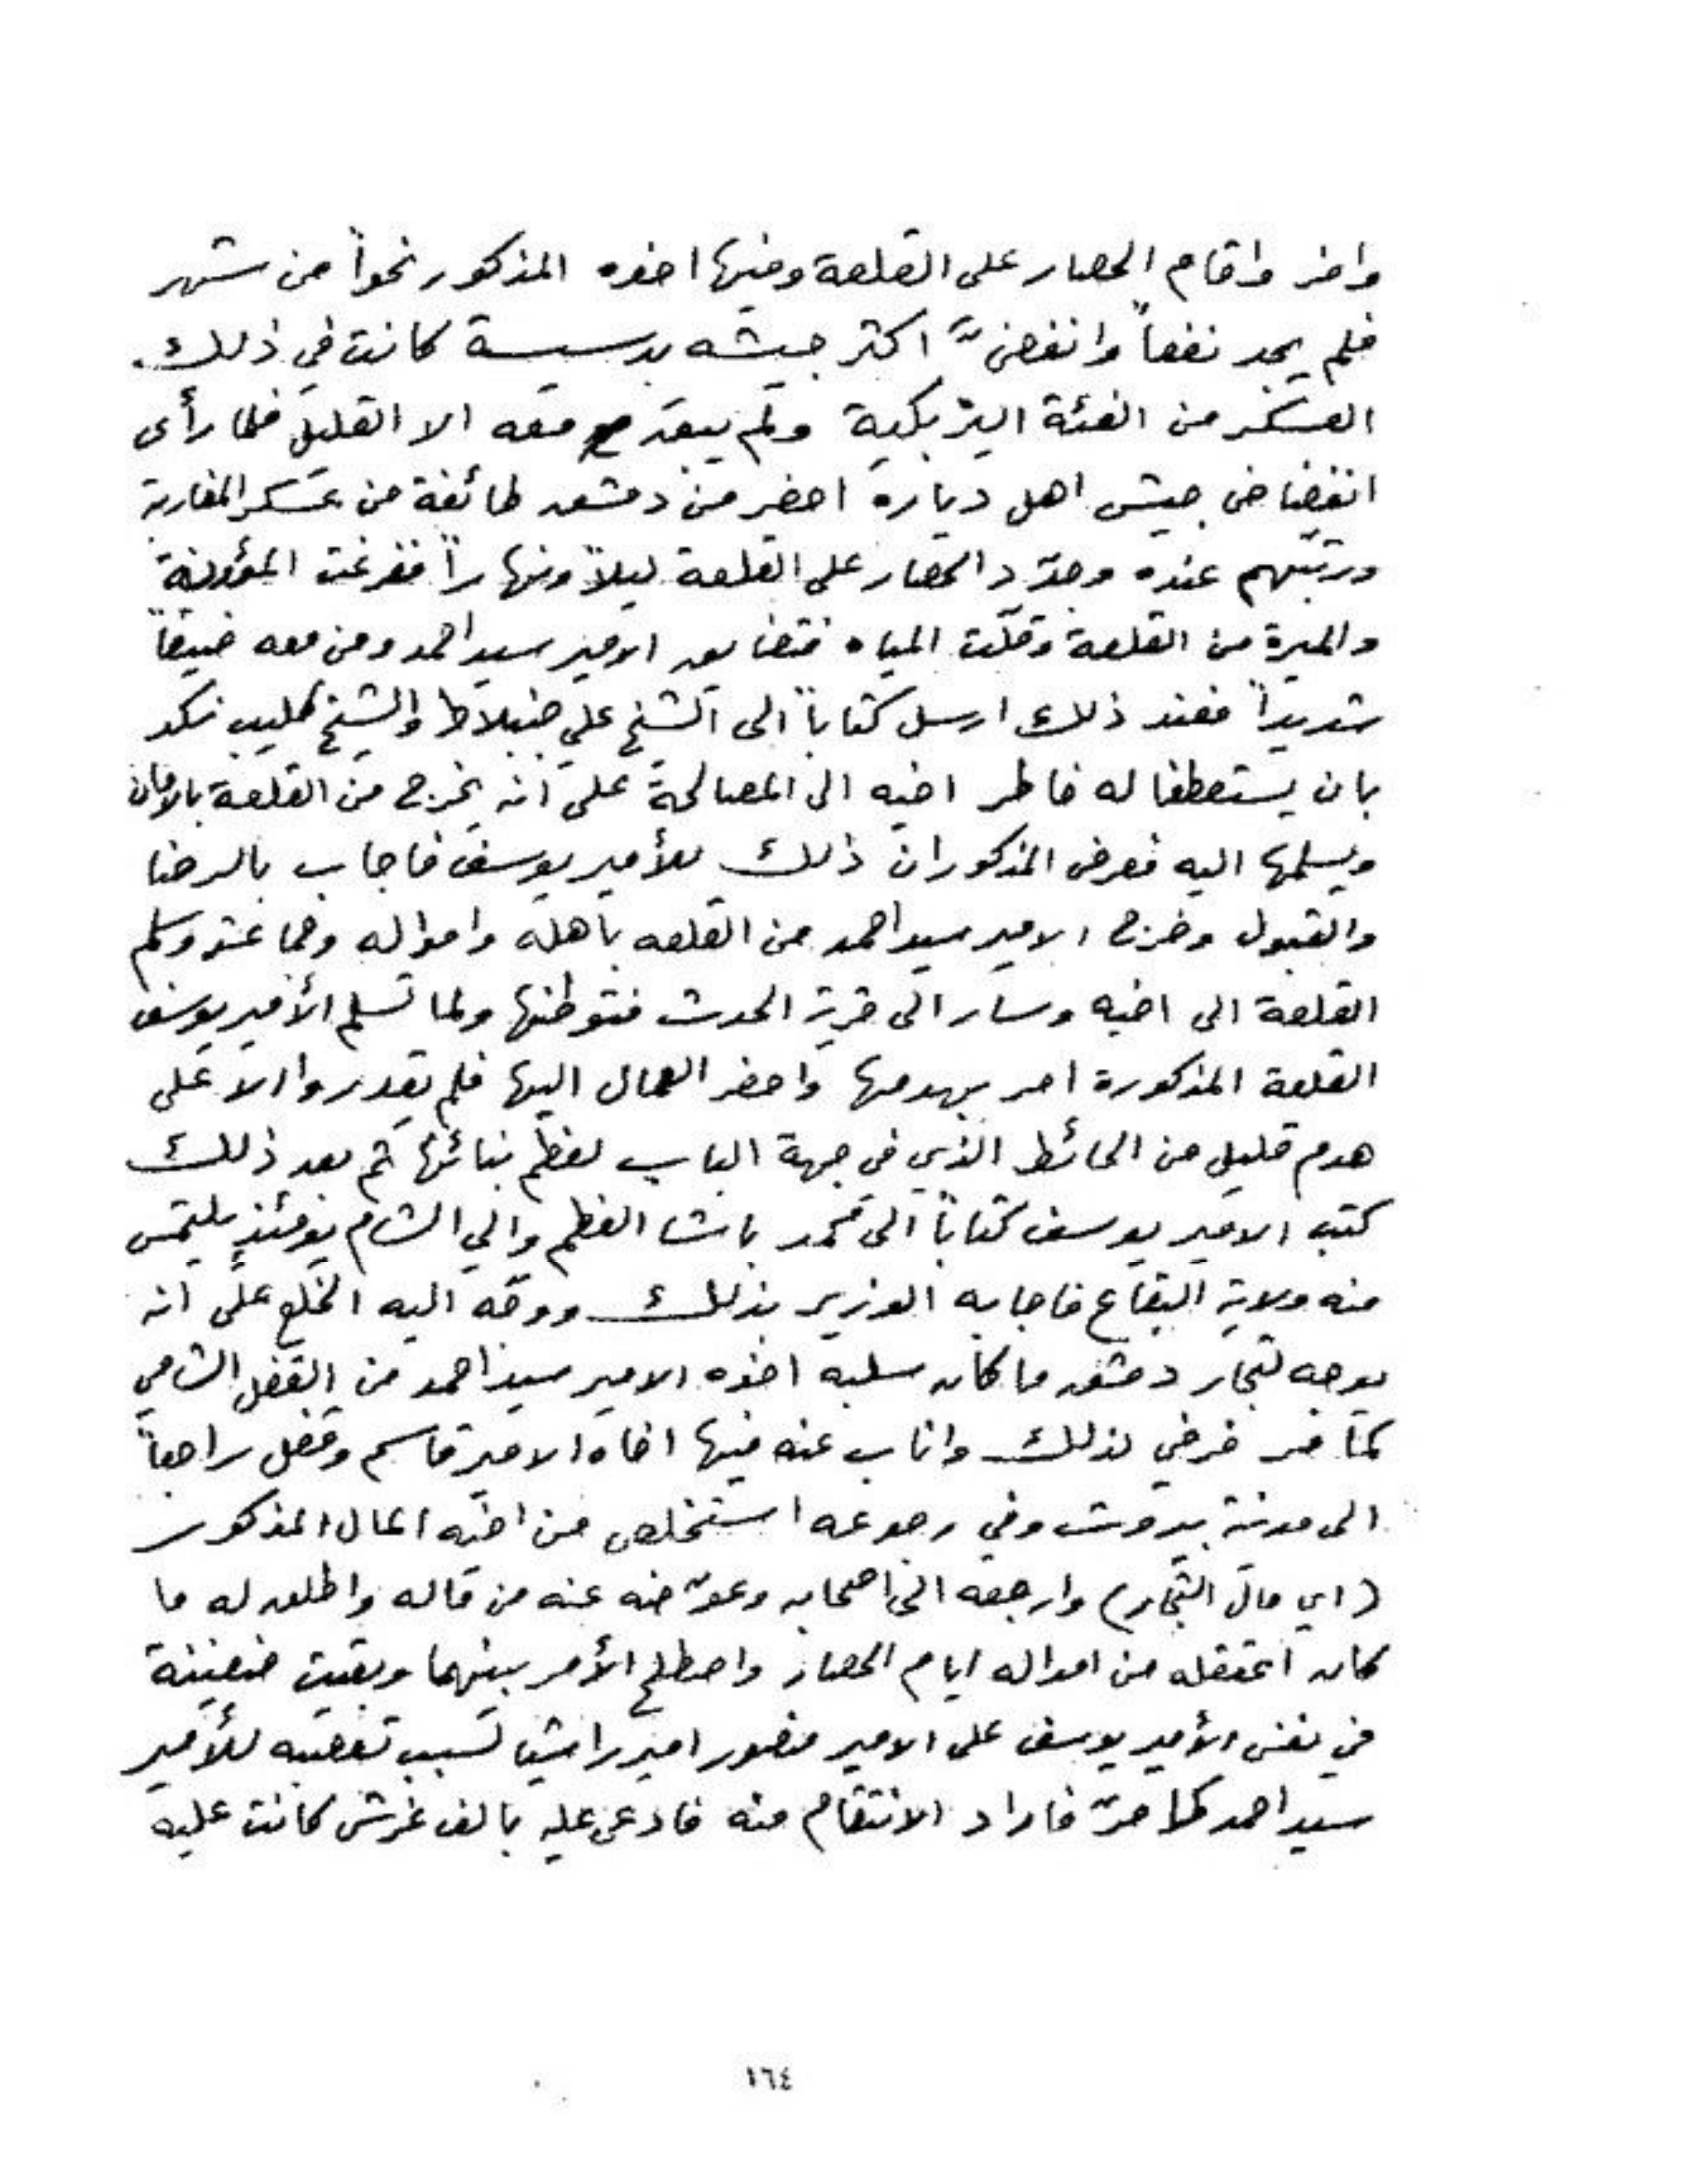 وافر واقام الحصار على القلعة وفيها اخوه المذكور نحواً من شهر
فلم يجد نفعاً وانفضّ اكثر جيشه بدسيسة كانت في ذلك
العسكر من الفئة اليزبكية ولم يبقَ معه الا القليل فلما رأى
انفضاض جيش اهل دياره احضر من دمشق طائفة من عسكر المغاربة
ورتبهم عنده وجدّد الحصار على القلعة ليلاً ونهاراً ففرغت المؤونة
والميرة من القلعة وقلّت المياه فتضايق الامير سيد احمد ومن معه ضيقاً
شديداً فعند ذلك ارسل كتاباً الى الشيخ علي جنبلاط والشيخ كليب نكد
بان يستعطفا له خاطر اخيه الى المصالحة على انه يخرج من القلعة بالامان
ويسلمها اليه فعرض المذكوران ذلك للأمير يوسف فاجاب بالرضا
والقبول وخرج الامير سيد احمد من القلعه بأهله وامواله وجماعته وسلم
القلعة الى اخيه وسار الى قرية الحدث فتوطنها ولما تسلم الأمير يوسف
القلعة المذكورة امر بهدمها واحضر العمال اليها فلم يقدروا الا على
هدم قليل من الحائط الذي في جهة الباب لعظم بنائها ثم بعد ذلك
كتب الامير يوسف كتاباً الى محمد باشا العظم والي الشام يومئذٍ يلتمس
منه ولاية البقاع فاجابه الوزير بذلك ووجّه اليه الخلع على انه
يوجه لتجار دمشق ما كان سلبه اخوه الامير سيد احمد من القفل الشامي
كما مر فرضي لذلك واناب عنه فيها اخاه الامير قاسم وقفل راجعاً
الى مدينة بيروت وفي رجوعه استخلص من اخيه المال المذكور
(اي مال التجار) وارجعه الى اصحابه وعوّضه عنه من ماله واطلق له ما
كان اعتقله من امواله ايام الحصار واصطلح الأمر بينهما وبقيت ضغينة
في نفس الأمير يوسف على الامير منصور امير راشيا لسبب تعصبه للأمير
سيد احمد كما مرّ فاراد الانتقام منه فادعى عليه بالف غرش كانت عليه
١٦٤